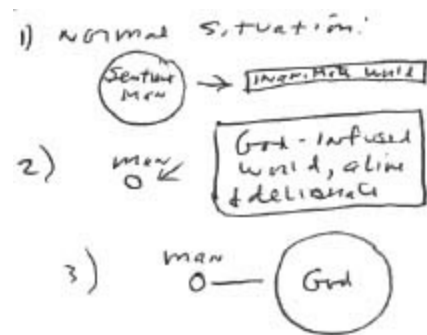 1) Normal situation:
Sentient
Man
inanimate world
2) man
God-infused
world, alive
& deliberate
3) man
God